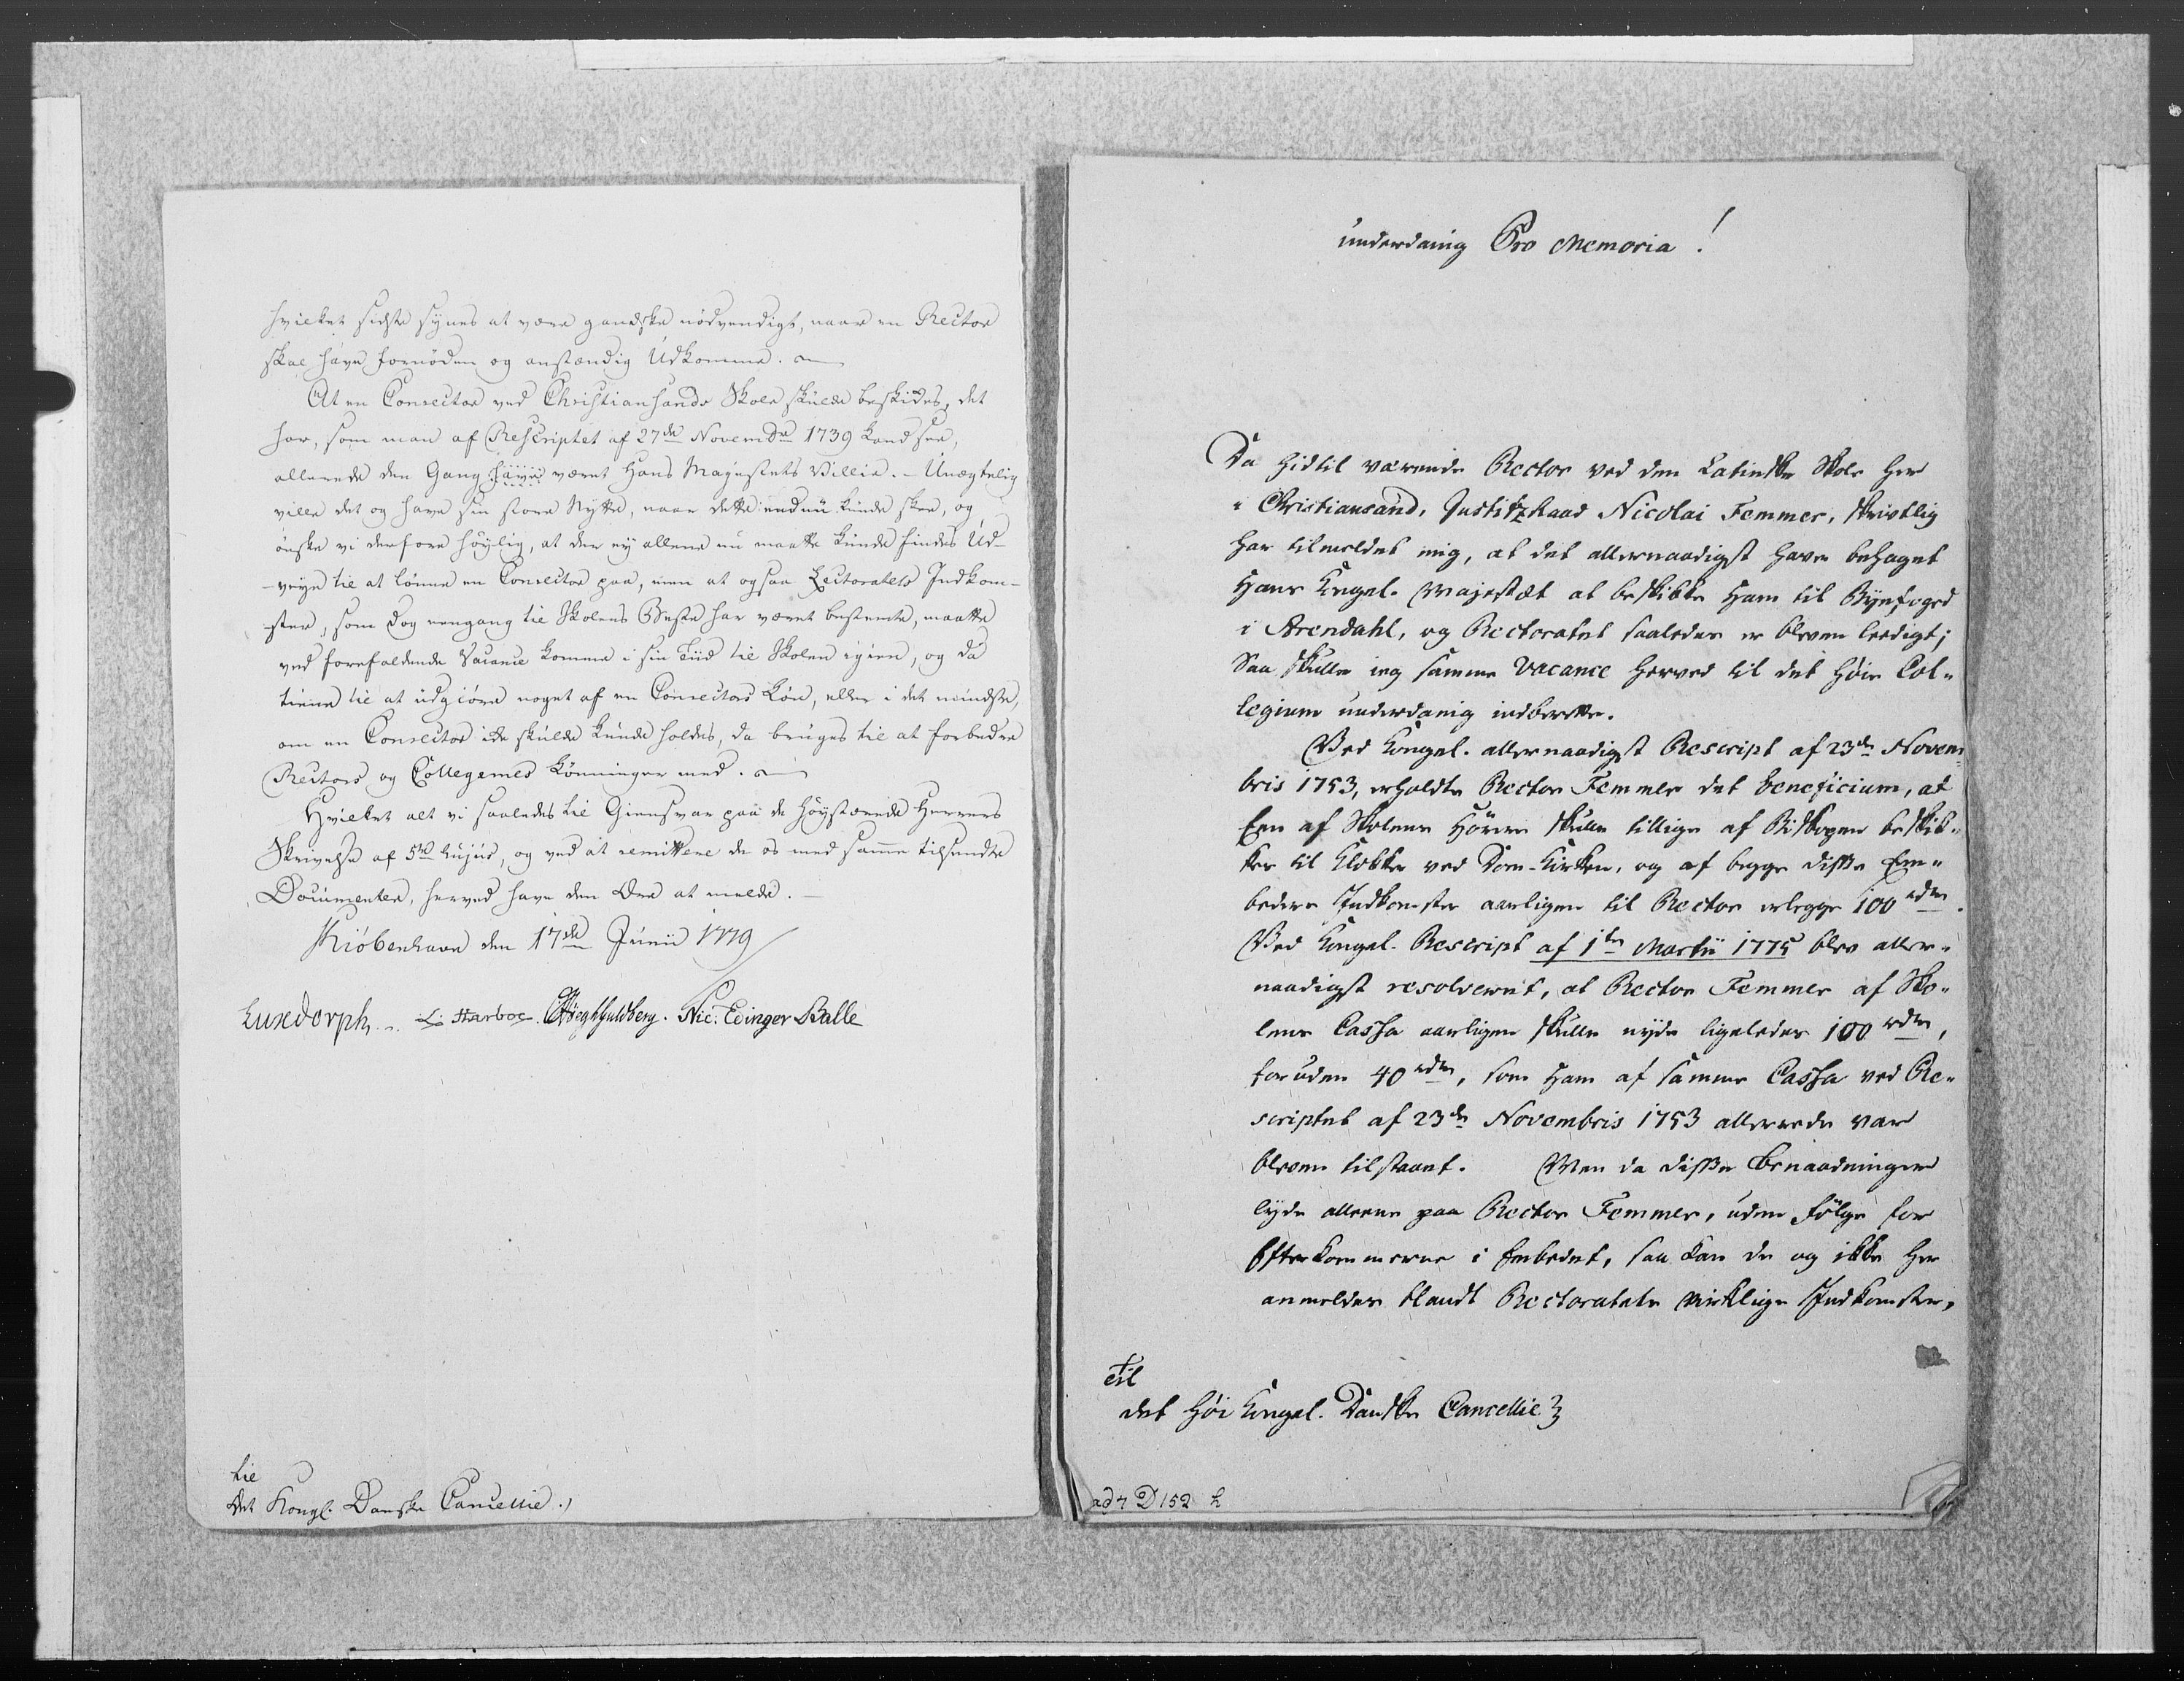 hvilket sidste synes at være gandske nödvendigt, naar en Rector
skal have fornöden og anstændig Udkomme.
At en Conrector ved Christiansands Skole skulde beskikkes, det
har, som man af Rescriptet af 27de Novembr 1739 kand see,
allerede den Gang havt været Hans Majestets Villie. - Unægtelig
ville det og have sin store Nytte, naar dette endnu kunde skee, og
önske vi derfore höylig, at der ey allene nu maatte kunde findes Ud-
-veye til at lönne en Conrector paa, men at ogsaa Lectoratets Indkom-
ster, som dog eengang til Skolens Beste har været bestemte, maatte
ved forefaldende Vacance komme i sin Tiid til Skolen igien, og da
tiene til at udgiöre noget af en Conrectors Lön, eller i det mindste,
om en Conrector icke skulde kunde holdes, da bruges til at forbedre
Rectors og Collegernes Lönninger med.
Hvilket alt vi saaledes til Giensvar paa de Höystærede Herrers
Skrivelse af 5te hujus, og ved at remittere de os med samme tilsendte
Documenter, herved have den Ære at melde. -
Kiöbenhavn den 17de Junii 1779
Luxdorph. L: Harboe. OHöeghGuldberg. Nic: Edinger Balle
til
Det Kongl. Danske Cancellie.
underdanig Pro Memoria!
Da hidtil værende Rector ved den Latindske Skole her
i Christiansand, JustitzRaad Nicolai Femmer, skriftlig
har tilmeldet mig, at det allernaadigst have behaget
Hans Kongel. Majestæt at beskikke Ham til Byefoged
i Arendahl, og Rectoratet saaledes er bleven leedigt;
Saa skulle ieg samme Vacance herved til det Höie Col-
legium underdanig indberette.
Ved Kongel. allernaadigst Rescript af 23de Novem-
bris 1753, erholdte Rector Femmer det beneficium, at
Een af Skolens Hörere skulle tillige af Biskopen beskik-
kes til Klokker ved Dom-Kirken, og af begge disse Em-
beders Indkomster aarligen til Rector erlegge 100 rdlr.
Ved Kongel. Rescript af 1ten Martii 1775 blev aller-
naadigst resolveret, at Rector Femmer af Sko-
lens Cassa aarligen skulle nyde ligeledes 100 rdlr,
foruden 40 rdlr, som Ham af samme Cassa ved Re-
scriptet af 23de Novembris 1753 allerrede var
bleven tilstaaet. Men da disse Benaadninger
lyde alleene paa Rector Femmer, uden Fölge for
Efterkommerne i Embedet, saa kan de og ikke her
anmeldes blandt Rectoratets virkelige Indkomster,
Til
det Höi Kongel. Dandske Cancellie
ad 7 D 152